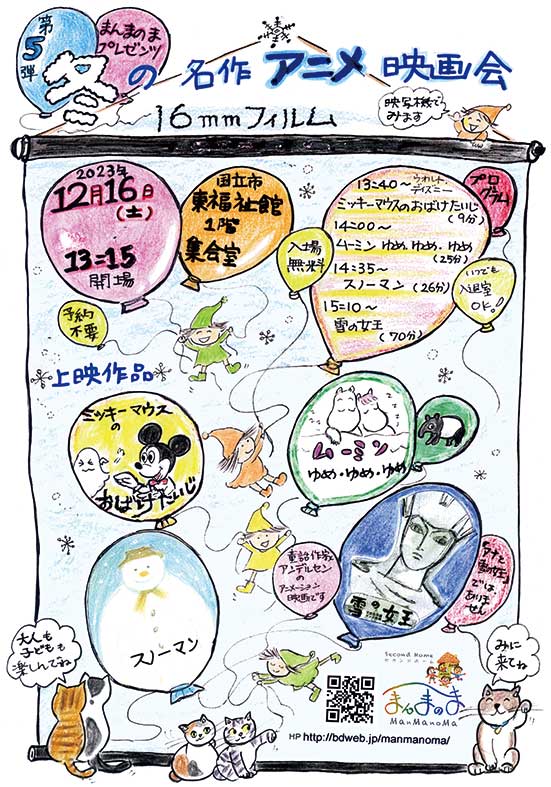 第5弾
まんまのま
プレゼンツ
冬の名作アニメ映画会
16mmフィルム
映写機で
みます
2023年
12月16日
(土)
13:15
開場
国立市
東福祉館
1階
集会室
プログラム
13:40〜ウォルト・ディズニー
ミッキーマウスのおばけたいじ
(9分)
14:00〜
ムーミン ゆめ・ゆめ・ゆめ
(25分)
14:35〜
スノーマン (26分)
15:10〜
雪の女王
(70分)
入場
無料
いつでも
入退室
OK!
予約
不要
上映作品
ミッキーマウス
の
おばけたいじ
ムーミン
ゆめ・ゆめ・ゆめ
スノーマン
童話作家
アンデルセンの
アニメーション
映画です
雪の女王
「アナと
雪の女王」
では
ありません
大人も
子どもも
楽しんでね
みに
来てね
Second Home
セカンドホーム
まんまのま
ManManoMa
HP http://bdweb.jp/manmanoma/